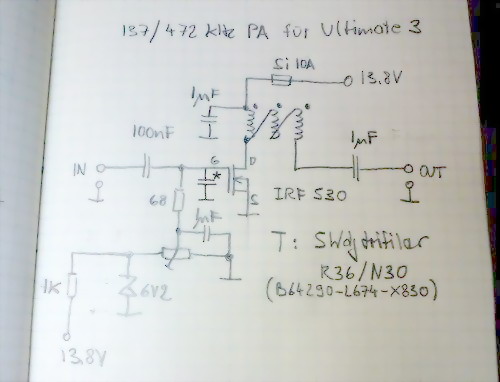 137/472 kHz PA für Ultimate 3
Si 10A
13.8V
1µF
100nF
1µF
IN
G
D
*
S
OUT
IRF 530
68
1µF
T: 5Wdg trifilar
R36/N30
(B64290-L674-X830)
1K
6V2
13.8V